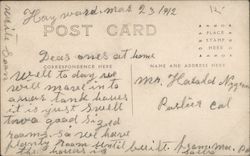 Hayward. mas 23 1912
POST CARD
PLACE STAMP HERE
Dear ones at home
CORRESPONDENCE HERE
NAME AND ADDRESS HERE
Well to day we
will move in to
tank house
it is just swell
two good sized
rooms. So we have
plenty room until
the house is
Mr. Harald
Parlier Cal
write soon